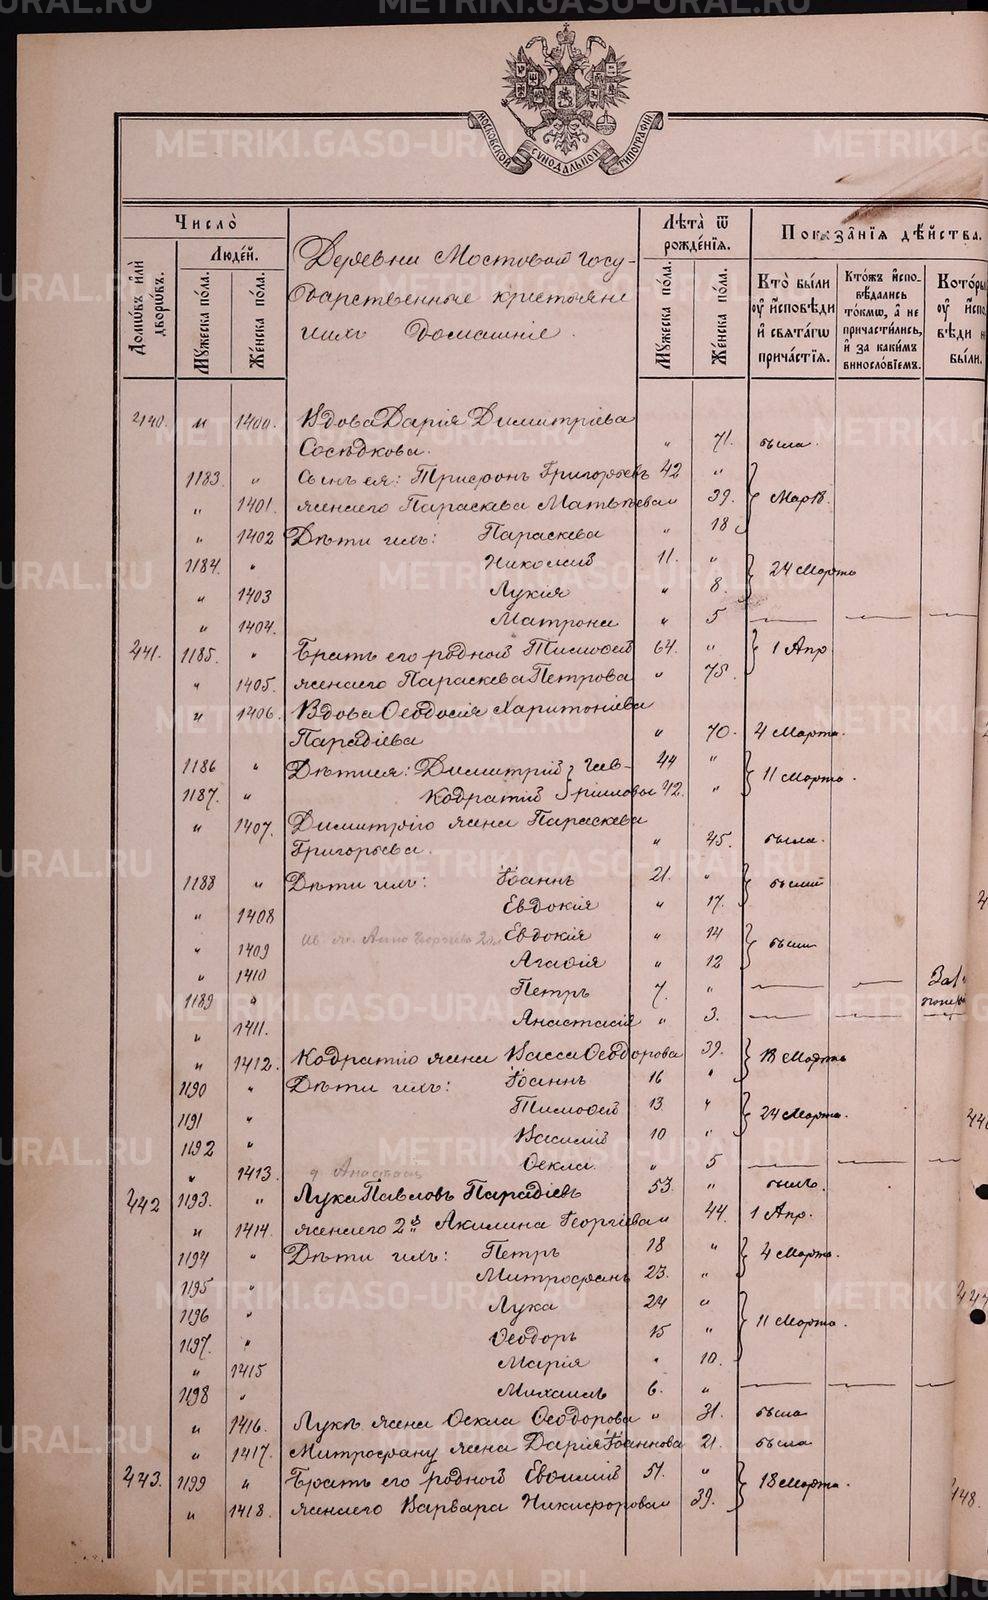 METRIKI.GASO-URAL.RU
МОСКОВСКОЙ СѴНОДАЛЬНОЙ ТИПОГРАФІИ
Число̀
Людéй.
Домѡ́въ и҆лѝ дворѡ́въ.
Мꙋ́жеска по́ла.
Же́нска по́ла.
Деревни Мостовой госу-
дарственные крестьяне
ихъ домашніе.
Лѣ́та ѿ рожде́нїѧ.
Мꙋ́жеска по́ла.
Же́нска по́ла.
Показа́нїѧ дѣ́йства.
Кто̀ бы́ли ᲂу҆ и҆́сповѣди и҆ свѧта́гѡ прича́стїѧ.
Кто́жъ и҆спо-вѣ́дались то́кмѡ, а҆ не причасти́лись, и҆ за каки́мъ винослов́їемъ.
Кото́ры ᲂу҆ и҆спо вѣди н бы́ли.
240. " 1400. Вдова Дарія Димитріева
Сосѣдкова. " 71. была.
1183. " Сынъ ея: Трифонъ Григорьевъ 42 "
" 1401. жена его Параскева Матвѣева " 39. Март.
" 1402 Дѣти ихъ: Параскева " 18
1184. " Николай 11. "
" 1403 Лукія " 8. 24 Марта
" 1404. Матрона " 5
241. 1185. " Братъ его родной Тимофей 64. " 1 Апр
" 1405. жена его Параскева Петрова " 75.
" 1406. Вдова Ѳеодосія Харитоніева
Парадіева " 70. 4 Марта.
1186 " Дѣти ея: Димитрій Гав- 44 " 11 Марта.
1187. " Кодратій риловы 42. "
" 1407. Димитрію жена Параскева
Григорьева. " 45. была.
1188 " Дѣти ихъ: Іоаннъ 21. " были
" 1408 Евдокія " 17.
" 1409 Евдокія " 14 были
" 1410 Агафія " 12
1189 " Петръ 7. "
" 1411. Анастасія " 3.
" 1412. Кодратію жена Васса Ѳеодорова 39. 18 Марта
1190 " Дѣти ихъ: Іоаннъ 16 "
1191 " Тимофей 13 " 24 Марта.
1192 " Василій 10 "
" 1413. Ѳекла. " 5
242 1193. " Лука Павловъ Парадіевъ 53. " былъ.
" 1414. жена его 2я Акилина Георгіева " 44. 1 Апр.
1194 " Дѣти ихъ: Петръ 18 " 4 Марта.
1195 " Митрофанъ 23. "
1196 " Лука 24 " 11 Марта.
1197. " Ѳеодоръ 15 "
" 1415 Марія " 10.
1198 " Михаилъ 6. "
" 1416. Лукѣ жена Ѳекла Ѳеодорова " 31. была
" 1417. Митрофану жена Дарія Іоаннова 21. была
243. 1199 " Братъ его родной Евфимій 51. " 18 Марта.
" 1418. жена его Варвара Никифорова " 39.